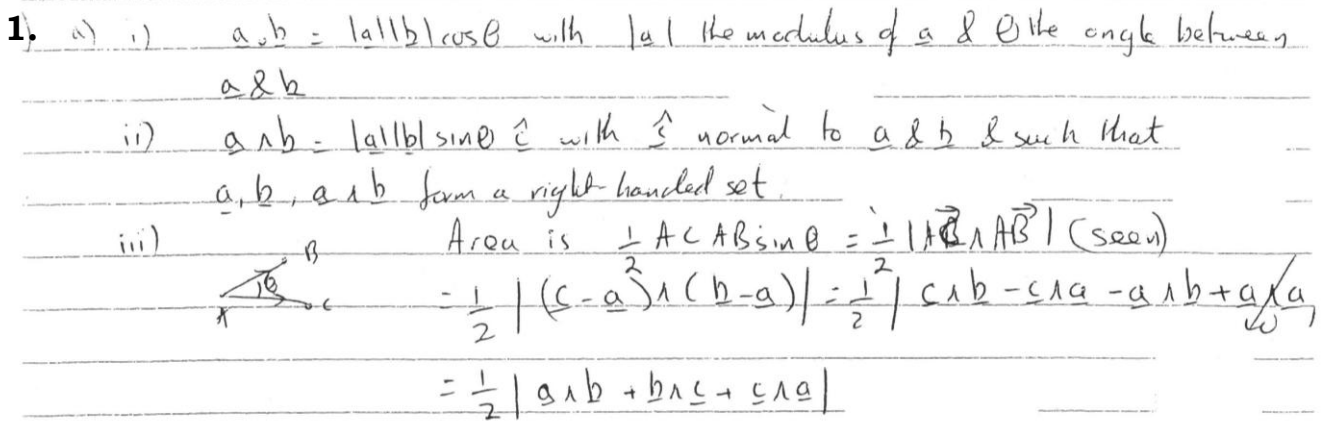 1. a) i) a.b = |a||b|cosθ with |a| the modulus of a & θ the angle between
a & b
ii) a∧b = |a||b| sinθ ĉ with ĉ normal to a & b & such that
a, b, a∧b form a right-handed set.
iii) Area is 1/2 AC AB sin θ = 1/2 |AC∧AB| (seen)
B
θ
A C
= 1/2 |(c-a)∧(b-a)| = 1/2 | c∧b - c∧a - a∧b + a∧a|
0
= 1/2 | a∧b + b∧c + c∧a|